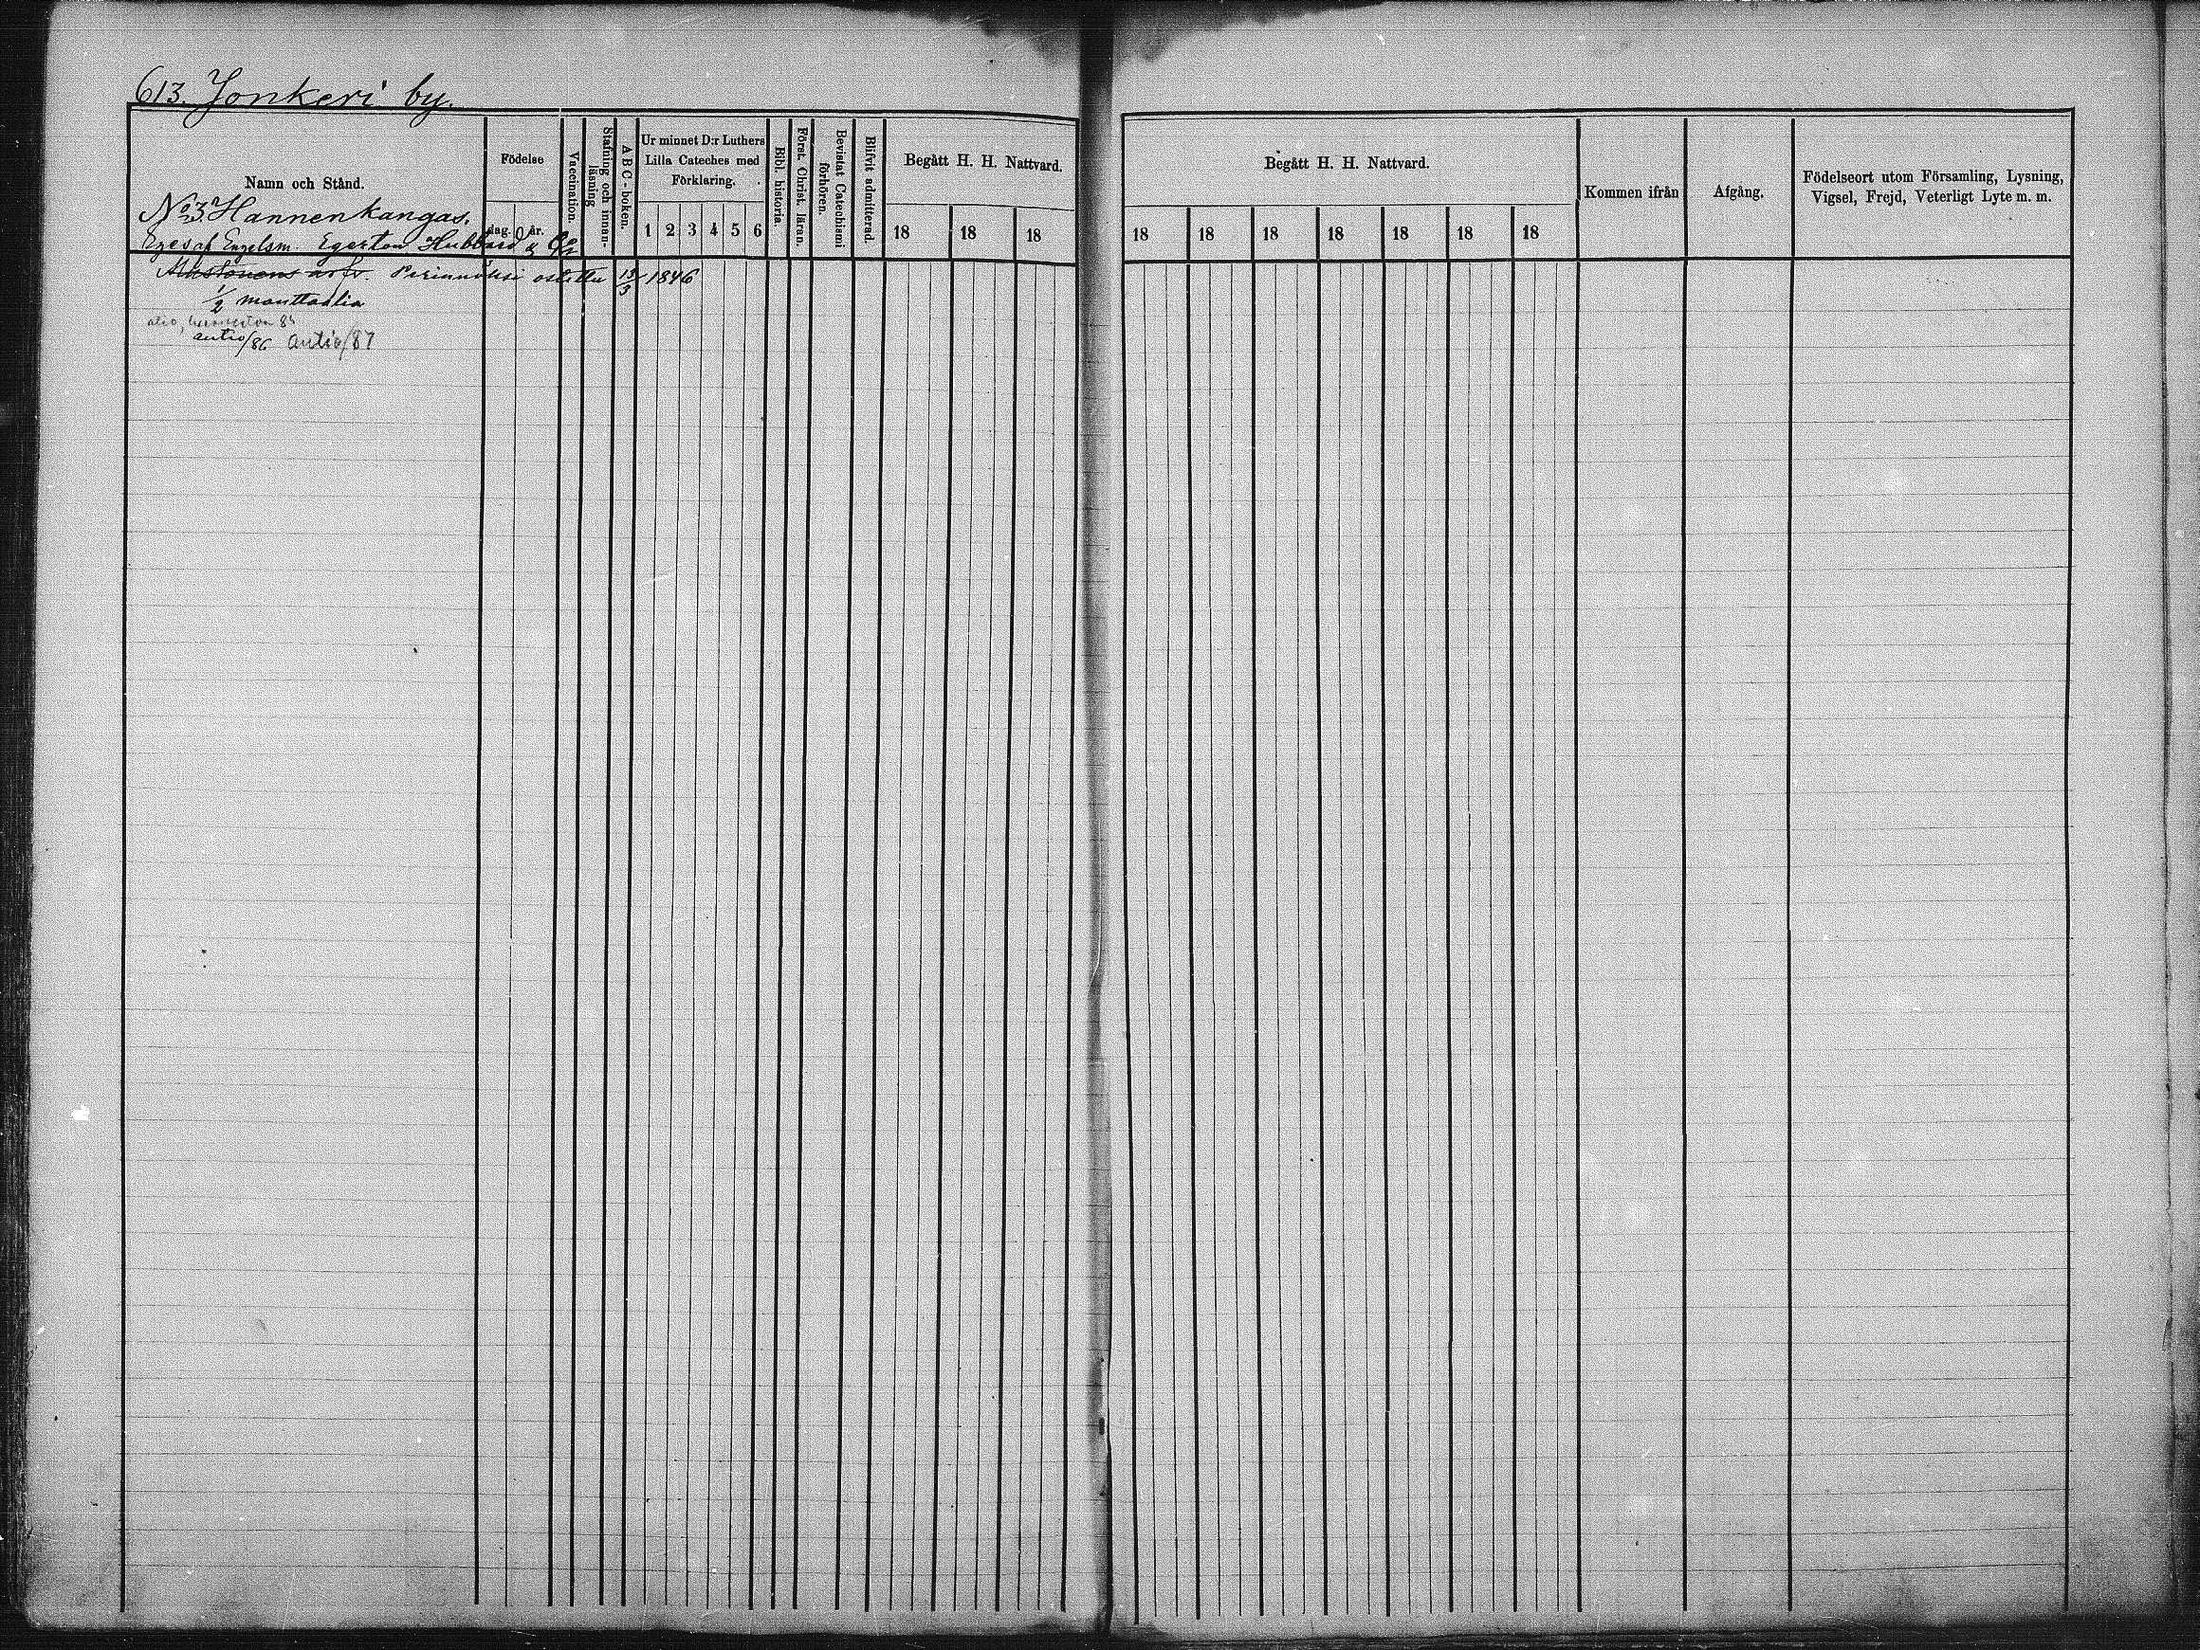 613. Jonkeri by.
Namn och Stånd.
No 3 Hannenkangas.
Eges af Engelsm. Egerton Hubbard & Co
Födelse
dag. år.
Vaccination.
Stafning och innan-
läsning
A B C-boken.
Ur minnet D:r Luthers
Lilla Cateches med
Förklaring.
1 2 3 4 5 6
Bibl. historia.
Först. Christ. läran.
Bevistat Catechismi
förhören.
Blifvit admitterad.
Begått H. H. Nattvard.
18 18 18
Begått H. H. Nattvard.
18 18 18 18 18 18 18
Kommen ifrån
Afgång.
Födelseort utom Församling, Lysning,
Vigsel, Frejd, Veterligt Lyte m. m.
Perinnöksi ostettu 13/3 1846
1/2 manttaalia
autio/86 autio/87